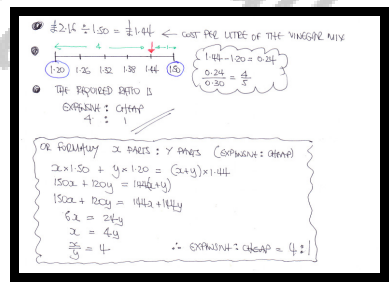 ① £2.16 ÷ 1.50 = £1.44 ← COST PER LITRE OF THE VINEGAR MIX
②
4 1
1.20 1.26 1.32 1.38 1.44 1.50
1.44 - 1.20 = 0.24
0.24/0.30 = 4/5
③ THE REQUIRED RATIO IS
EXPENSIVE : CHEAP
4 : 1
OR FORMALLY x PARTS : y PARTS (EXPENSIVE : CHEAP)
x×1.50 + y×1.20 = (x+y)×1.44
150x + 120y = 144(x+y)
150x + 120y = 144x + 144y
6x = 24y
x = 4y
x/y = 4 ∴ EXPENSIVE : CHEAP = 4:1